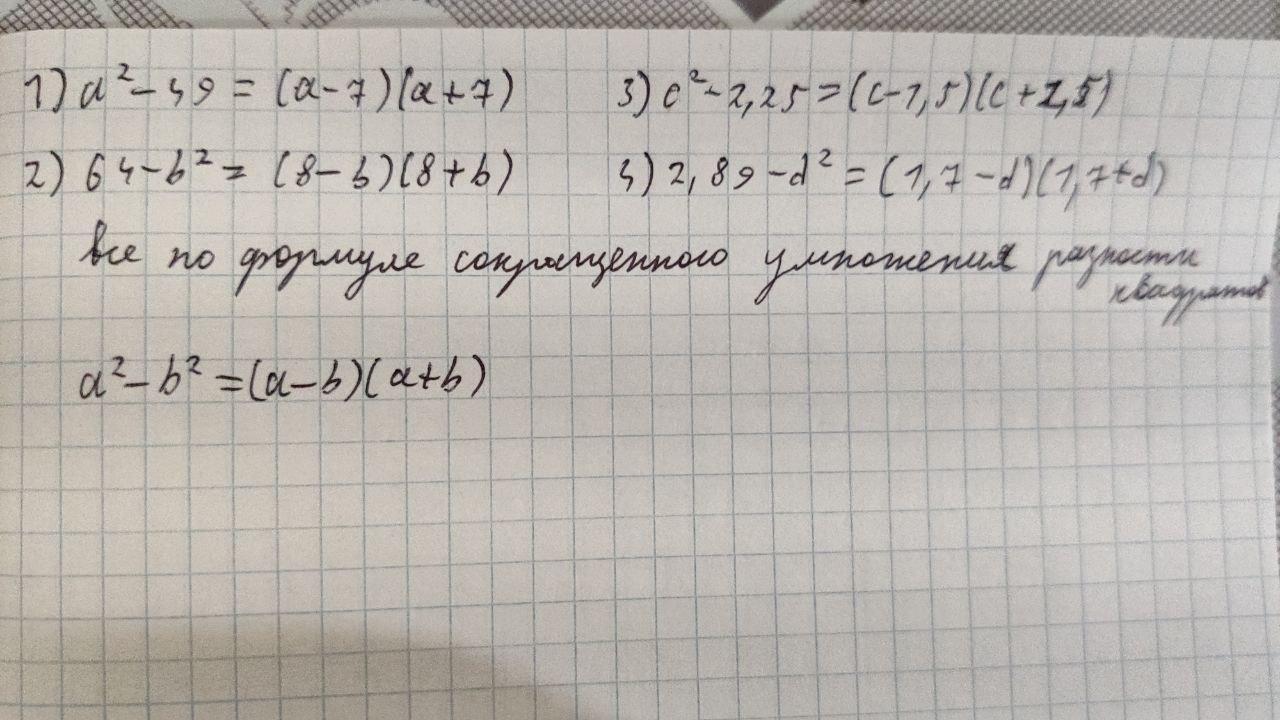 1) a² - 49 = (a-7)(a+7) 3) c² - 2,25 = (c-1,5)(c+1,5)
2) 64 - b² = (8-b)(8+b) 4) 2,89 - d² = (1,7-d)(1,7+d)
все по формуле сокращенного умножения разности
квадратов
a² - b² = (a-b)(a+b)